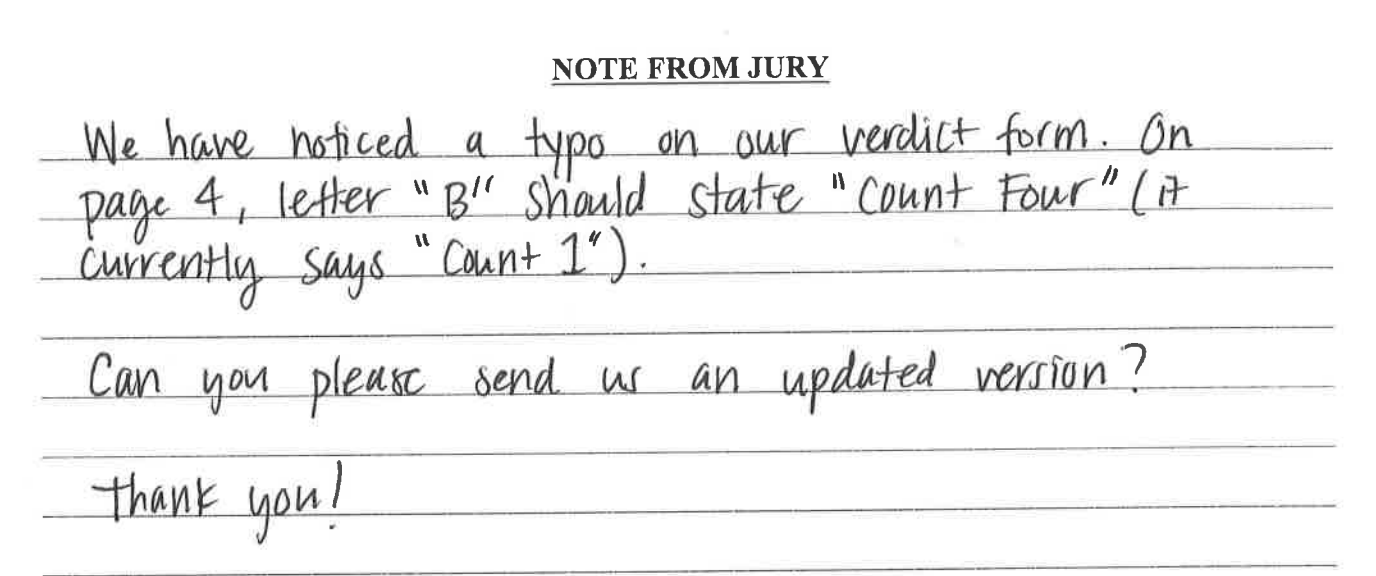 NOTE FROM JURY
We have noticed a typo on our verdict form. On
page 4, letter "B" should state "Count Four" (it
currently says "Count 1").
Can you please send us an updated version?
Thank you!